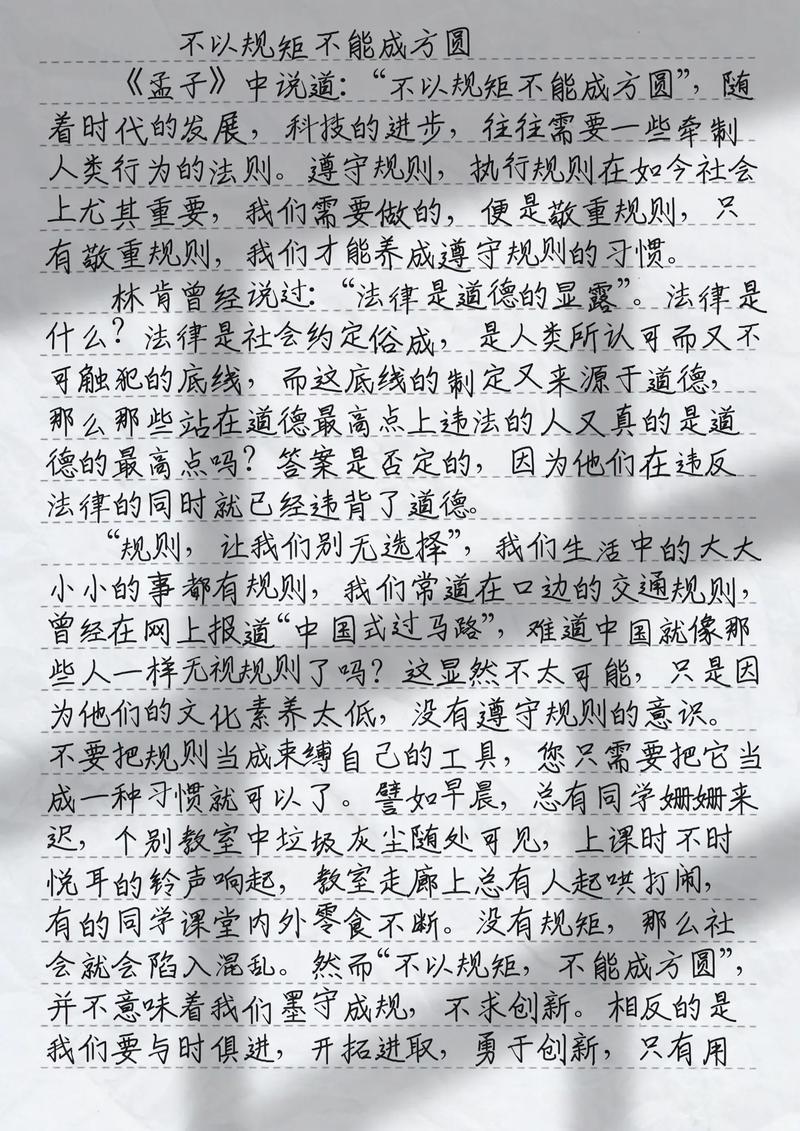 不以规矩不能成方圆
《孟子》中说道：“不以规矩不能成方圆”，随
着时代的发展，科技的进步，往往需要一些牵制
人类行为的法则。遵守规则，执行规则在如今社会
上尤其重要，我们需要做的，便是敬重规则，只
有敬重规则，我们才能养成遵守规则的习惯。
林肯曾经说过：“法律是道德的显露”。法律是
什么？法律是社会约定俗成，是人类所认可而又不
可触犯的底线，而这底线的制定又来源于道德，
那么那些站在道德最高点上违法的人又真的是道
德的最高点吗？答案是否定的，因为他们在违反
法律的同时就已经违背了道德。
“规则，让我们别无选择”，我们生活中的大大
小小的事都有规则，我们常道在口边的交通规则，
曾经在网上报道“中国式过马路”，难道中国就像那
些人一样无视规则了吗？这显然不太可能，只是因
为他们的文化素养太低，没有遵守规则的意识。
不要把规则当成束缚自己的工具，您只需要把它当
成一种习惯就可以了。譬如早晨，总有同学姗姗来
迟，个别教室中垃圾灰尘随处可见，上课时不时
悦耳的铃声响起，教室走廊上总有人起哄打闹，
有的同学课堂内外零食不断。没有规矩，那么社
会就会陷入混乱。然而“不以规矩，不能成方圆”，
并不意味着我们墨守成规，不求创新。相反的是
我们要与时俱进，开拓进取，勇于创新，只有用